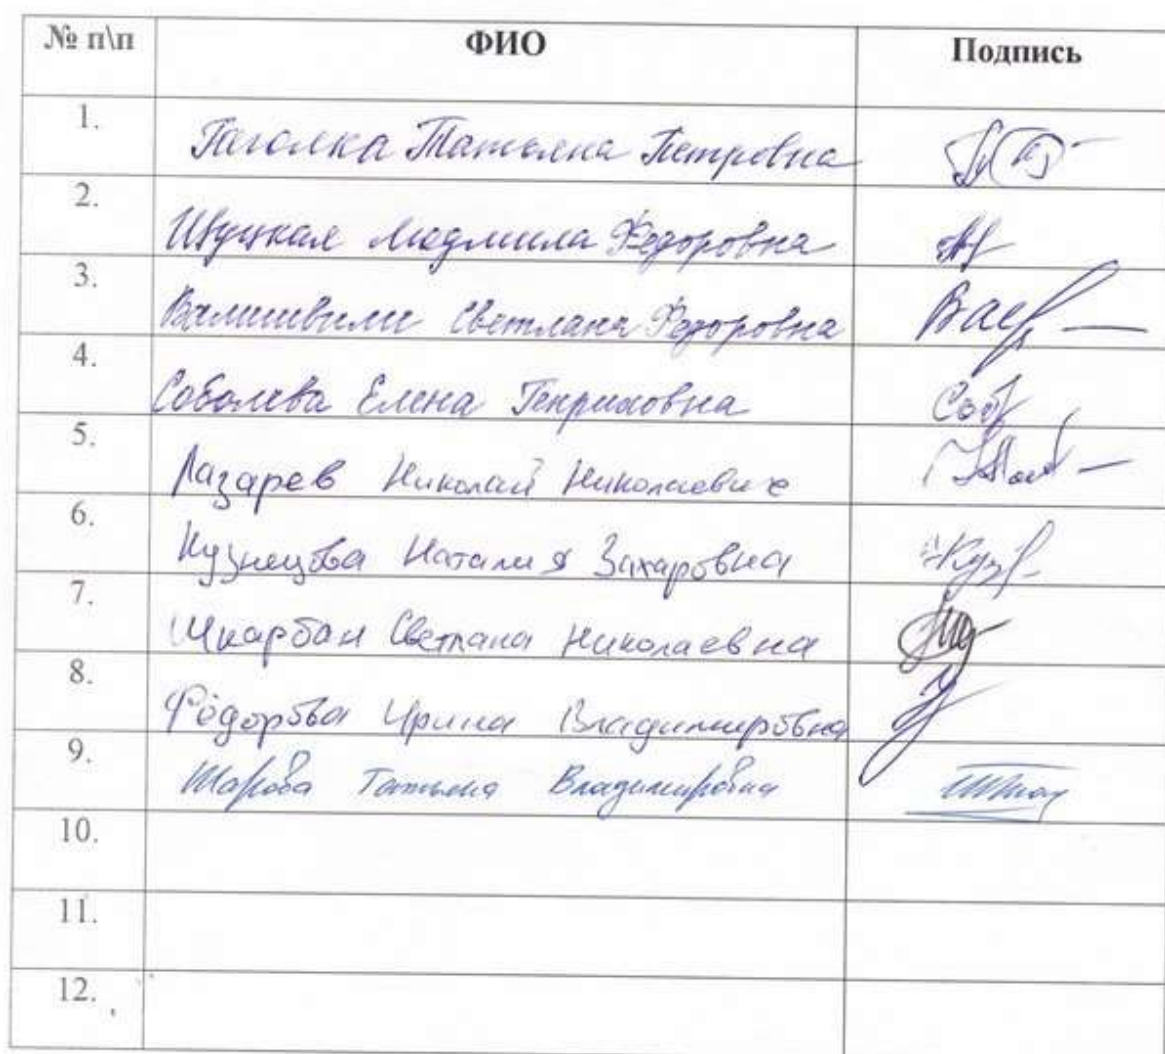 № п\п ФИО Подпись
1. Гаголка Татьяна Петровна
2. Шуцкая Людмила Федоровна
3. Валишвили Светлана Федоровна
4. Соболева Елена Генриховна Соб
5. Лазарев Николай Николаевич
6. Кузнецова Наталия Захаровна Куз
7. Шкарбан Светлана Николаевна
8. Фёдорова Ирина Владимировна
9. Шарова Татьяна Владимировна
10.
11.
12.